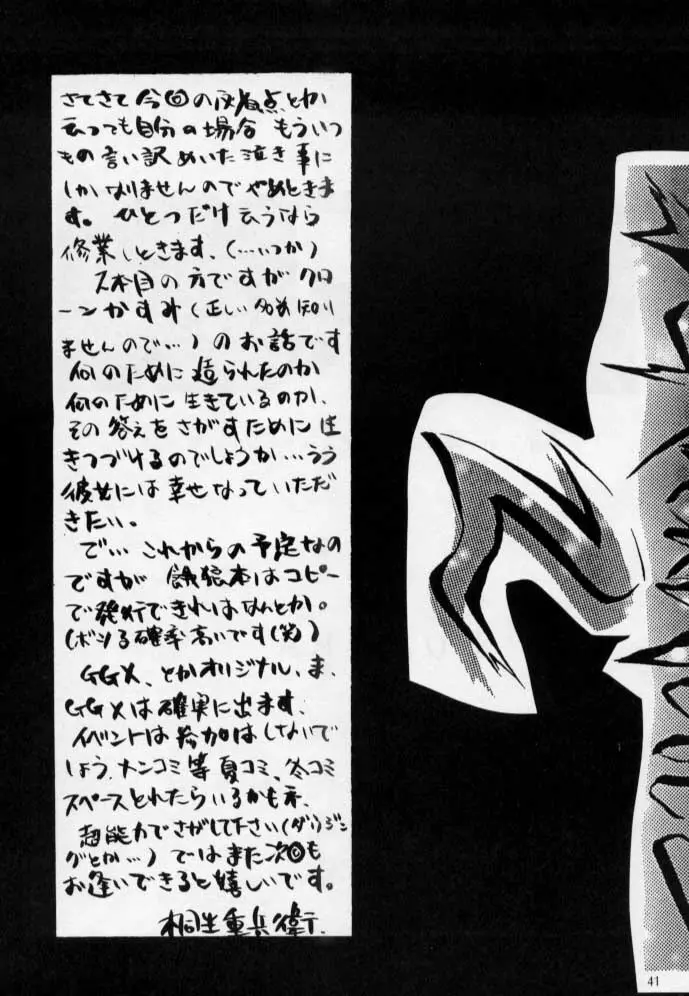 さてさて今回の反省点とか
云っても自分の場合 もういつ
もの言い訳めいた泣き事に
しかなりませんのでやめときま
す。ひとつだけ云うなら
修業しときます、(…いつか)
本目の方ですがクロ
ーンかすみ(正しい名前知り
ませんので…)のお話です
何のために造られたのか
何のために生きているのか、
その答えをさがすために生
きつづけるのでしょうか…うう
彼女には幸せなっていただ
きたい。
で…これからの予定なの
ですが 餓狼本はコピー
で発行できればなんとか。
(ボツる確率高いです(笑))
GGX、とかオリジナル、ま、
GGXは確実に出ます、
イベントは参加はしないで
しょう、ナンコミ等夏コミ、冬コミ
スペースとれたらいるかもネ、
超能力でさがして下さい(ダウジン
グとか…)ではまた次回も
お逢いできると嬉しいです。
桐生重兵衛、
41